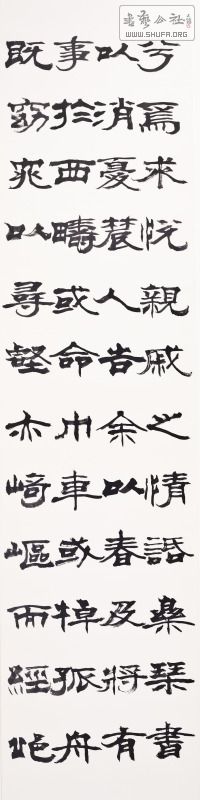 書藝公社
WWW.SHUFA.ORG
兮焉求悅親戚之情話樂琴書
以消憂農人告余以春及將有
事於西疇或命巾車或棹孤舟
既窈窕以尋壑亦崎嶇而經丘